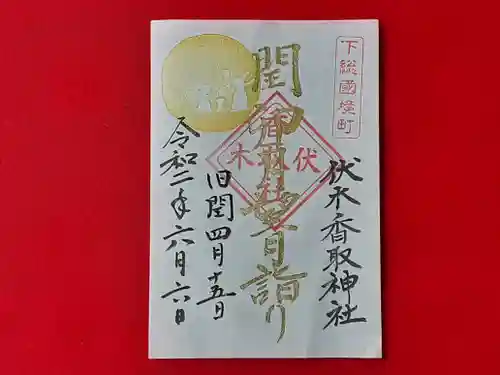 下総國境町
伏木香取神社
閏御
詣り
香取社
伏木
旧閏四月十五日
令和二年六月六日